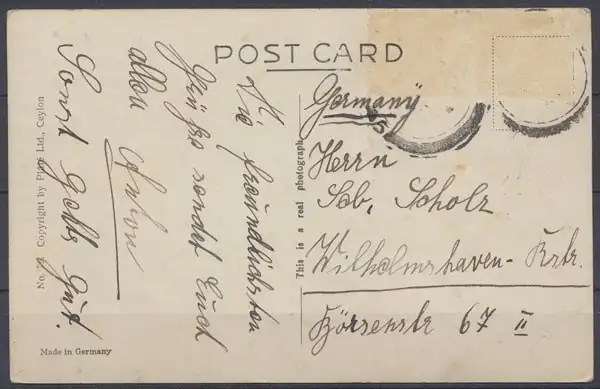 POST CARD
Die freundlichsten
Grüsse sendet Euch
allen Anton
Sonst gehts gut.
Germany
Herrn
Seb. Scholz
Wilhelmshaven-Rstr.
Börsenstr 67 II
This is a real photograph
No. Copyright by Platé Ltd., Ceylon
Made in Germany